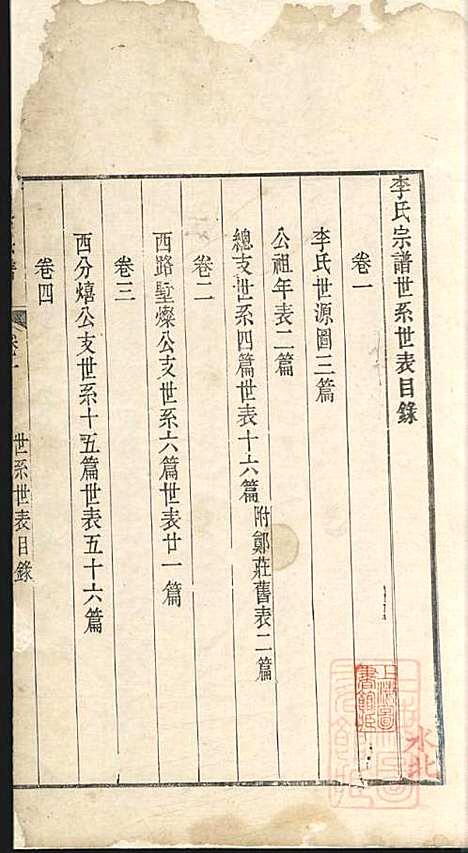 李氏宗譜世系世表目錄
卷一
李氏世源圖三篇
公祖年表二篇
總支世系四篇世表十六篇 附鄭莊舊表二篇
卷二
西路墅燦公支世系六篇世表廿一篇
卷三
西分熺公支世系十五篇世表五十六篇
卷四
世系世表目錄
上海圖書館藏
水北